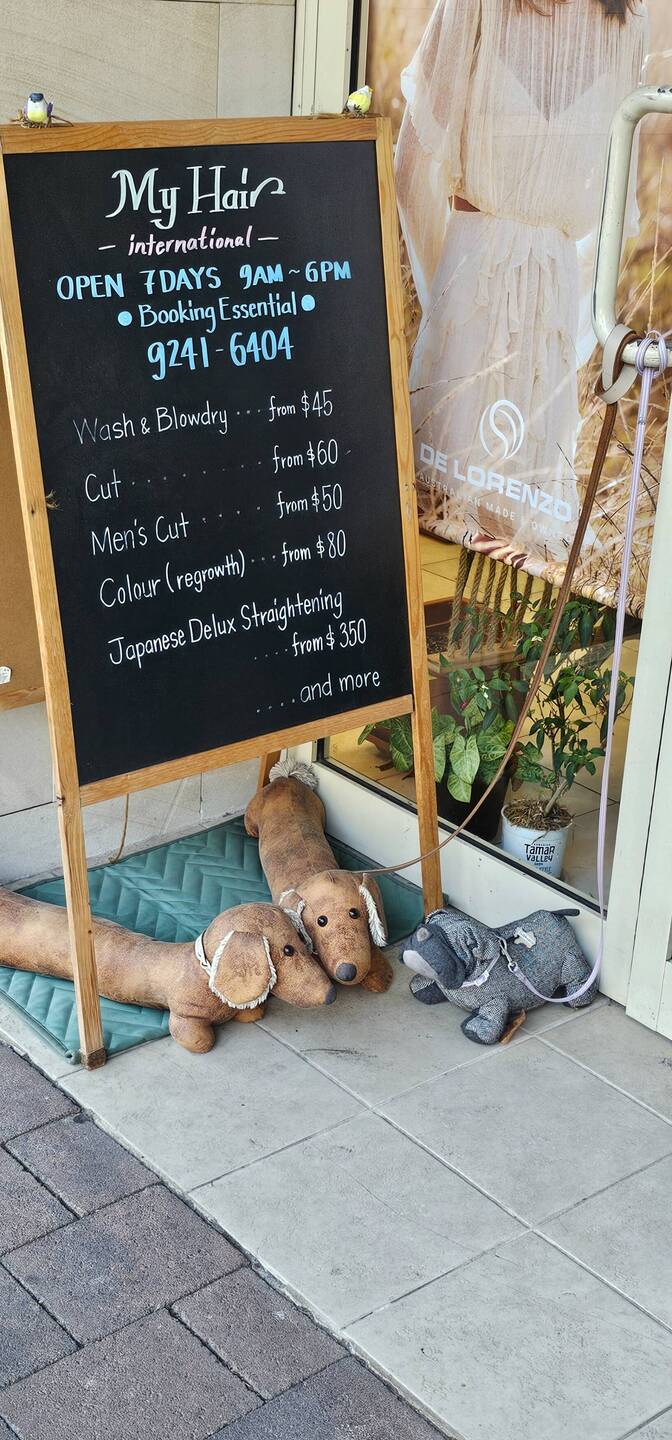 My Hair
– international –
OPEN 7 DAYS 9AM ~ 6PM
• Booking Essential •
9241 - 6404
Wash & Blowdry ... from $45
Cut ......... from $60
Men's Cut ...... from $50
Colour (regrowth) ... from $80
Japanese Delux Straightening
.... from $350
.... and more
DE LORENZO
AUSTRALIAN MADE & OWNED
TAMAR
VALLEY